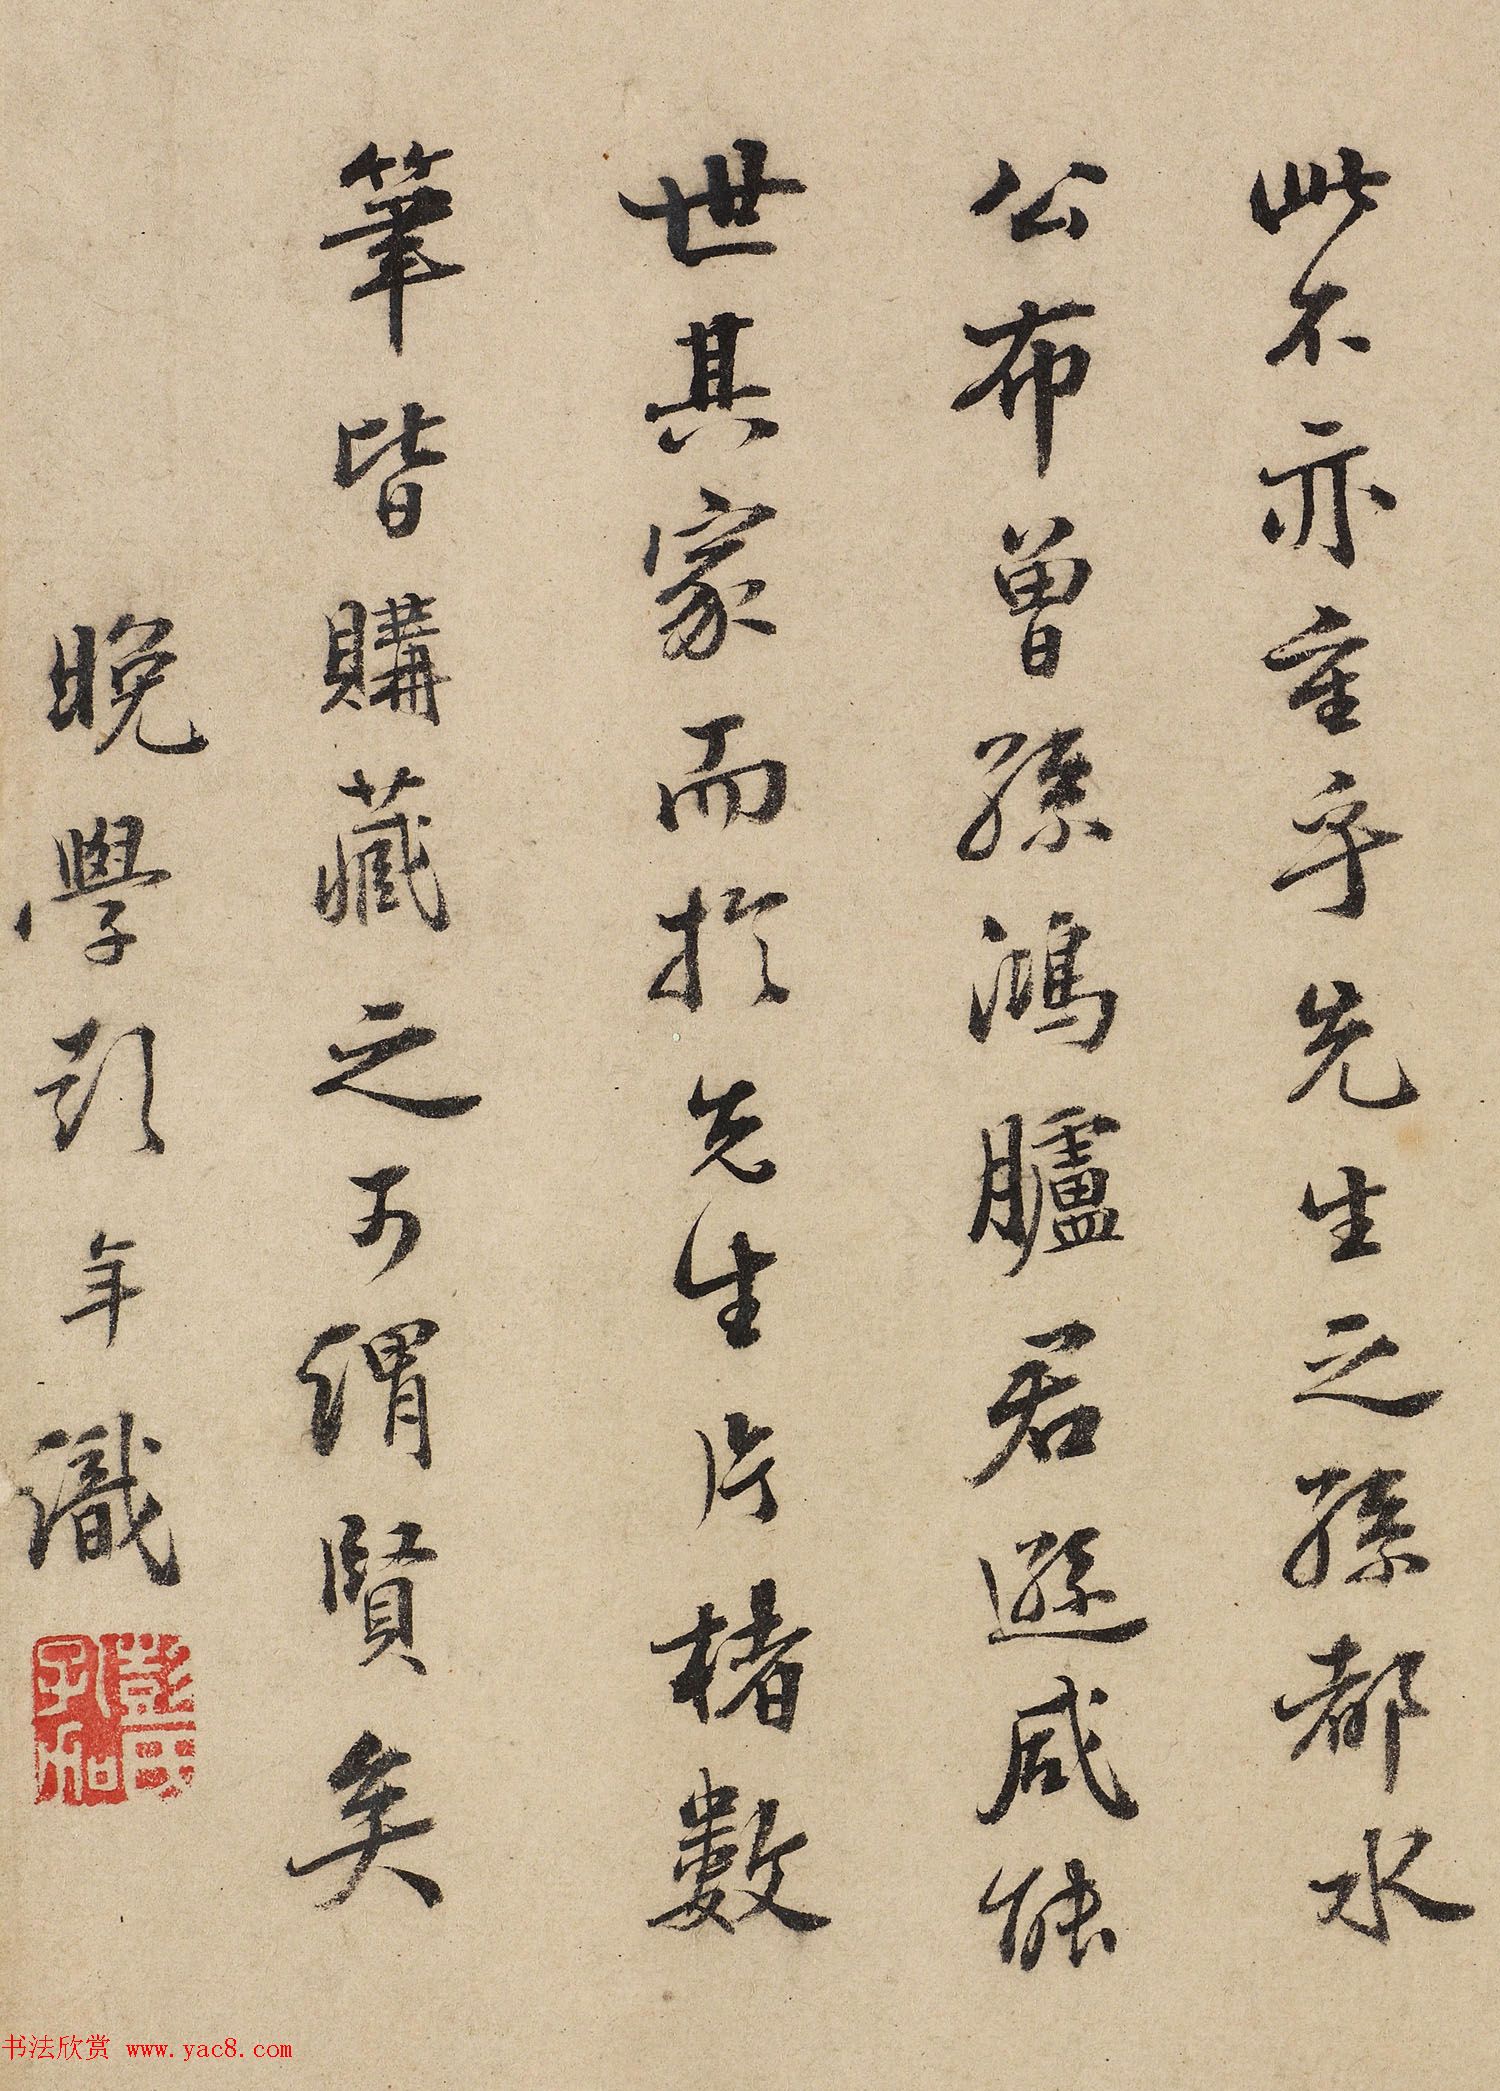 此不亦重乎先生之孫都水
公布曾孫鴻臚君遜咸能
世其家而於先生片楮數
筆皆購藏之可謂賢矣
晚學彭年識
书法欣赏 www.yac8.com